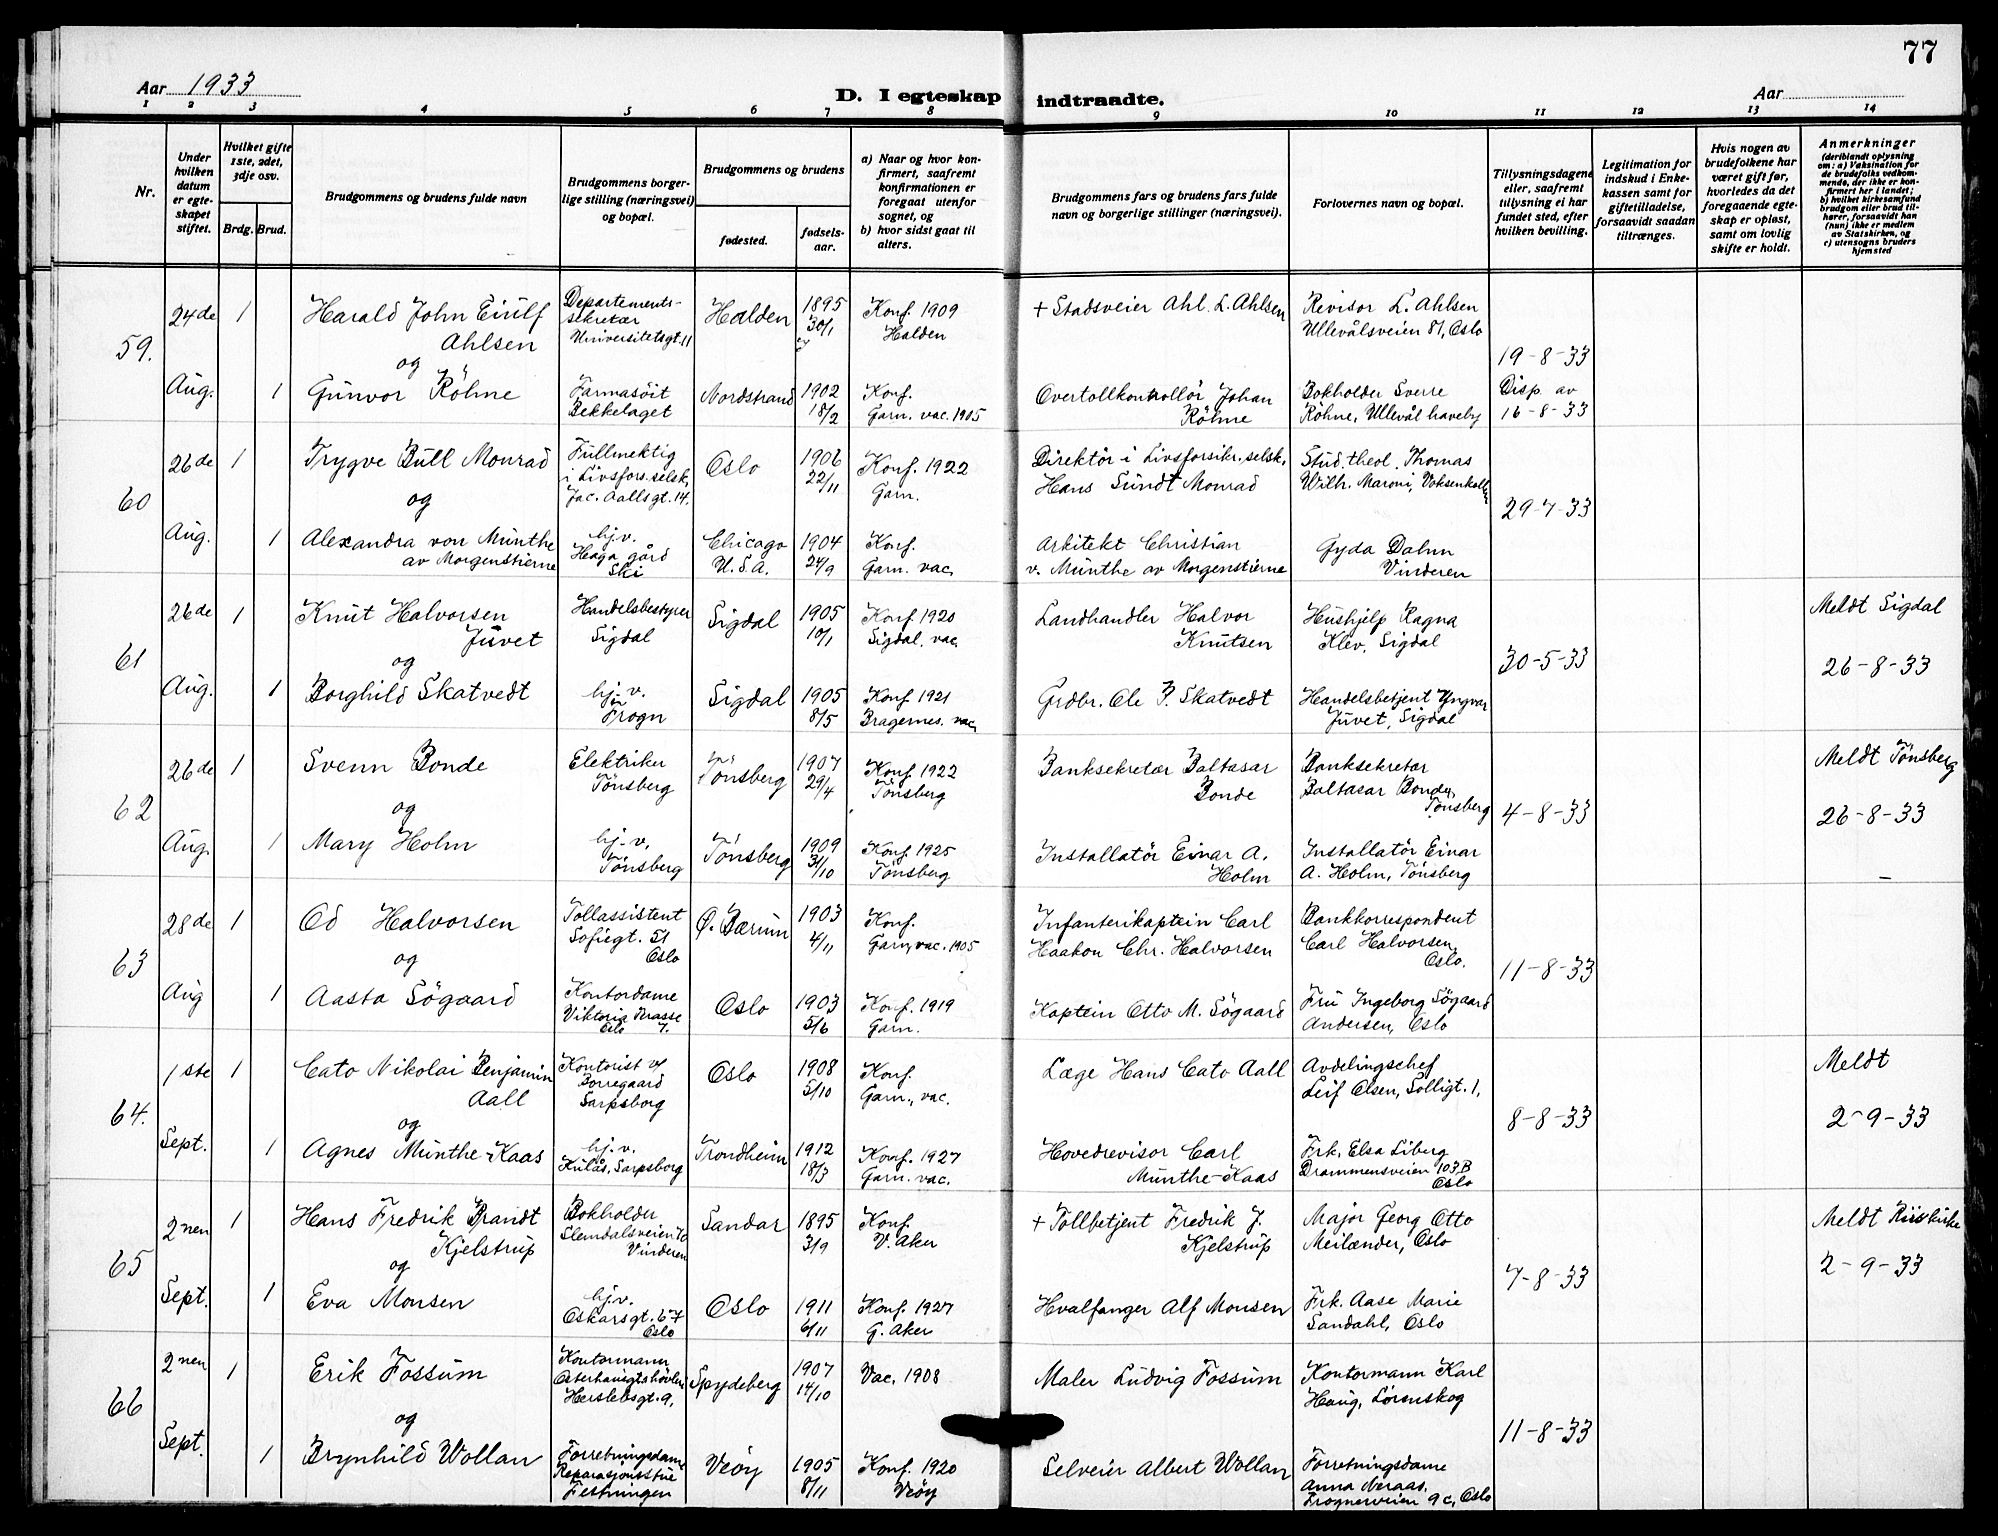 77
Aar 1933
D. I egteskap indtraadte.
Aar
1 2 3 4 5 6 7 8 9 10 11 12 13 14
Nr.
Under hvilken datum er egteskapet stiftet.
Hvilket gifte 1ste, 2det, 3dje osv.
Brdg. Brud.
Brudgommens og brudens fulde navn
Brudgommens borgerlige stilling (næringsvei) og bopæl.
Brudgommens og brudens
fødested.
fødselsaar.
a) Naar og hvor konfirmert, saafremt konfirmationen er foregaat utenfor sognet, og
b) hvor sidst gaat til alters.
Brudgommens fars og brudens fars fulde navn og borgerlige stillinger (næringsvei).
Forlovernes navn og bopæl.
Tillysningsdagene eller, saafremt tillysning ei har fundet sted, efter hvilken bevilling.
Legitimation for indskud i Enkekassen samt for giftetilladelse, forsaavidt saadan tiltrænges.
Hvis nogen av brudefolkene har været gift før, hvorledes da det foregaaende egteskap er opløst, samt om lovlig skifte er holdt.
Anmerkninger (deriblandt oplysning om: a) Vaksination for de brudefolks vedkommende, der ikke er konfirmert her i landet; b) hvilket kirkesamfund brudgom eller brud tilhører, forsaavidt han (hun) ikke er medlem av Statskirken, og c) utensogns bruders hjemsted
59.
24de Aug.
1
Harald John Eiulf Ahlsen
Departementssekretær Universitetsgt. 11
Halden
1895 30/1
Konf. 1909 Halden
+ Stadsveier Ahl. L. Ahlsen
Revisor L. Ahlsen Ullevålsveien 81, Oslo
og
1
Gunvor Röhne
Farmasöit Bekkelaget
Nordstrand
1902 18/2
Konf. Garn. vac. 1905
Overtollkontrollör Johan Röhne
Bokholder Sverre Röhne, Ullevål haveby
19-8-33
Disp. av 16-8-33
60
26de Aug.
1
Trygve Bull Monrad
Fullmektig i Livsfors.selsk. Jac. Aallsgt. 14.
Oslo
1906 22/11
Konf. 1922 Garn.
Direktör i Livsforsikr.selsk. Hans Sundt Monrad
Stud. theol. Thomas Wilh. Maroni, Voksenkollen
og
1
Alexandra von Munthe av Morgenstierne
hj.v. Haga gård Ski
Chicago U.S.A.
1904 24/9
Konf. Garn. vac.
Arkitekt Christian v. Munthe av Morgenstierne
Gyda Dahm Vinderen
29-7-33
61
26de Aug.
1
Knut Halvorsen Juvet
Handelsbestyrer Sigdal
Sigdal
1905 10/1
Konf. 1920 Sigdal, vac.
Landhandler Halvor Knutsen
Hushjelp Ragna Klev, Sigdal
og
1
Borghild Skatvedt
hj.v. Frogn
Sigdal
1905 8/5
Konf. 1921 Bragernes. vac.
Grdbr. Ole P. Skatvedt
Handelsbetjent Yngvar Juvet, Sigdal
30-5-33
Meldt Sigdal 26-8-33
62
26de Aug.
1
Svenn Bonde
Elektriker Tönsberg
Tönsberg
1907 29/4
Konf. 1922 Tönsberg
Banksekretær Baltasar Bonde
Banksekretær Baltasar Bonde, Tönsberg
og
1
Mary Holm
hj.v. Tönsberg
Tönsberg
1909 31/10
Konf. 1925 Tönsberg
Installatör Einar A. Holm
Installatör Einar A. Holm, Tönsberg
4-8-33
Meldt Tönsberg 26-8-33
63
28de Aug
1
Od Halvorsen
Tollassistent Sofiegt. 51 Oslo
Ø. Bærum
1903 4/11
Konf. Garn, vac. 1905
Infanterikaptein Carl Haakon Chr. Halvorsen
Bankkorrespondent Carl Halvorsen, Oslo.
og
1
Aasta Sögaard
Kontordame Viktoria Terasse 7. Oslo
Oslo
1903 5/6
Konf. 1919 Garn.
Kaptein Otto M. Sögaard
Fru Ingeborg Sögaard Andersen, Oslo
11-8-33
64.
1ste Sept.
1
Cato Nikolai Benjamin Aall
Kontorist v/ Borregaard Sarpsborg
Oslo
1908 5/10
Konf. Garn., vac.
Læge Hans Cato Aall
Avdelingschef Leif Olsen, Solligt. 1,
og
1
Agnes Munthe-Kaas
hj.v. Kulås, Sarpsborg
Trondheim
1912 18/3
Konf. 1927 Garn. vac.
Hovedrevisor Carl Munthe-Kaas
Frk. Elsa Liberg Drammensveien 103B Oslo
8-8-33
Meldt 2-9-33
65
2nen Sept.
1
Hans Fredrik Brandt Kjelstrup
Bokholder Slemdalsveien 70 Vinderen
Sandar
1895 3/9
Konf. V. Aker
+ Tollbetjent Fredrik J. Kjelstrup
Major Georg Otto Meilænder, Oslo
og
1
Eva Monsen
hj.v. Oskarsgt. 67 Oslo
Oslo
1911 6/11
Konf. 1927 G. Aker
Hvalfanger Alf Monsen
Frk. Aase Marie Sandahl, Oslo
7-8-33
Meldt Riis kirke 2-9-33
66
2nen Sept.
1
Erik Fossum
Kontormann Herslebsgt. 9,
Spydeberg
1907 14/10
Vac. 1908
Maler Ludvig Fossum
Kontormann Karl Haug, Lörenskog
og
1
Brynhild Wollan
Forretningsdame Festningen
Veöy
1905 8/11
Konf. 1920 Veöy
Selveier Albert Wollan
Forretningsdame Anna Neraas, Frognerveien 9c, Oslo
11-8-33